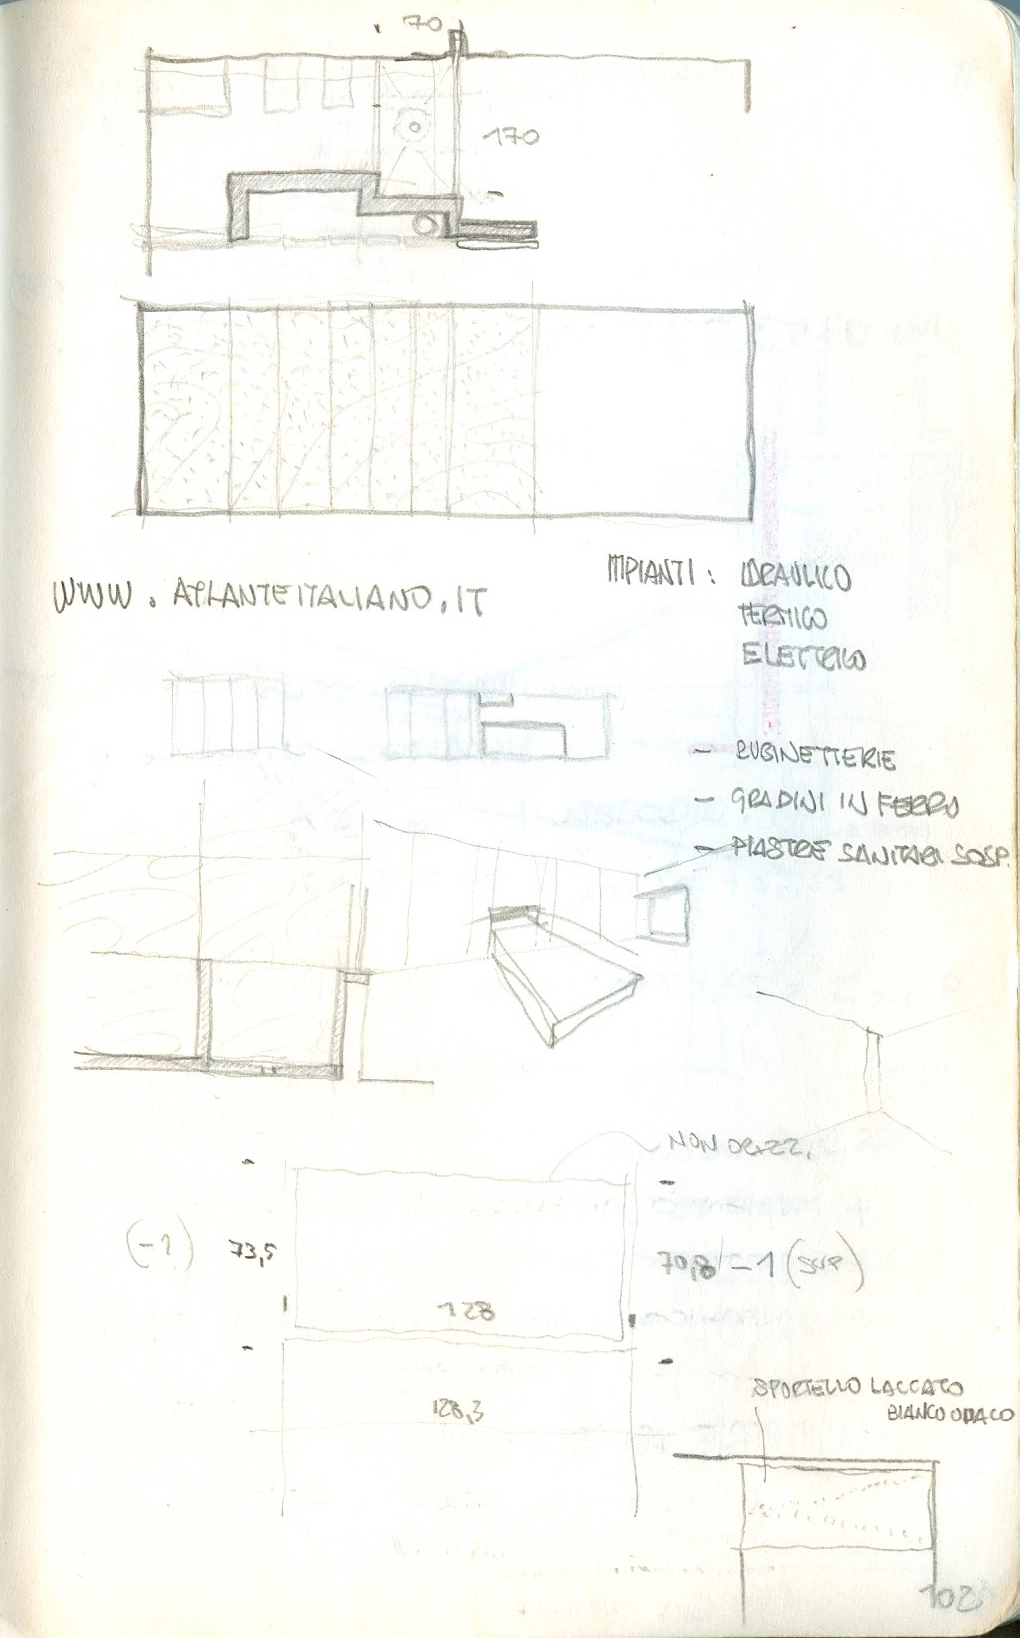 70
170
WWW. ATLANTEITALIANO.IT
IMPIANTI: IDRAULICO
TERMICO
ELETTRICO
- RUBINETTERIE
- GRADINI IN FERRO
- PIASTRE SANITARI SOSP.
NON ORIZZ.
(-1) 73,5
70,8 -1 (SUP)
128
128,3
SPORTELLO LACCATO
BIANCO OPACO